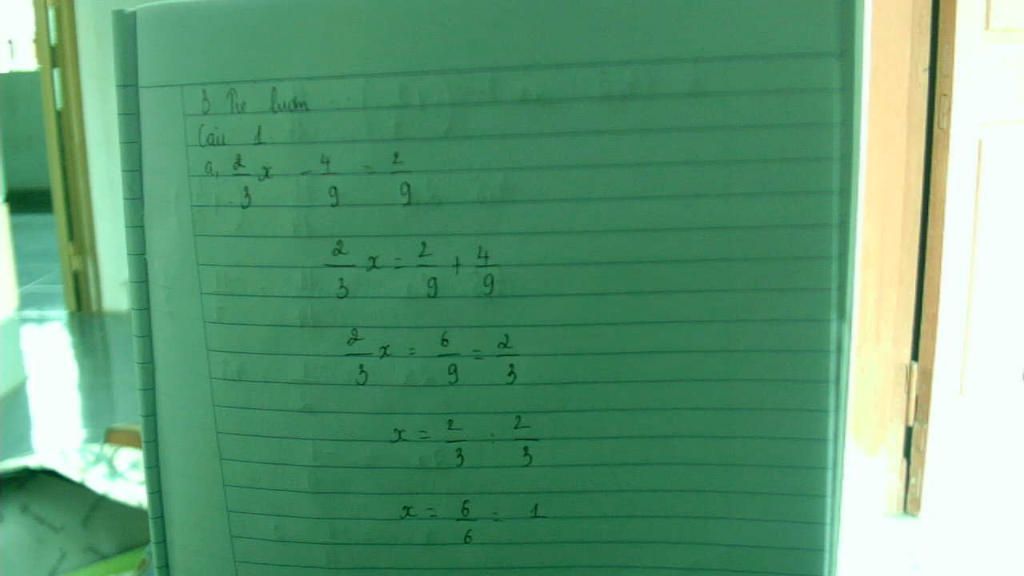 B Tự luận
Câu 1
a, 2/3 x - 4/9 = 2/9
2/3 x = 2/9 + 4/9
2/3 x = 6/9 = 2/3
x = 2/3 : 2/3
x = 6/6 = 1